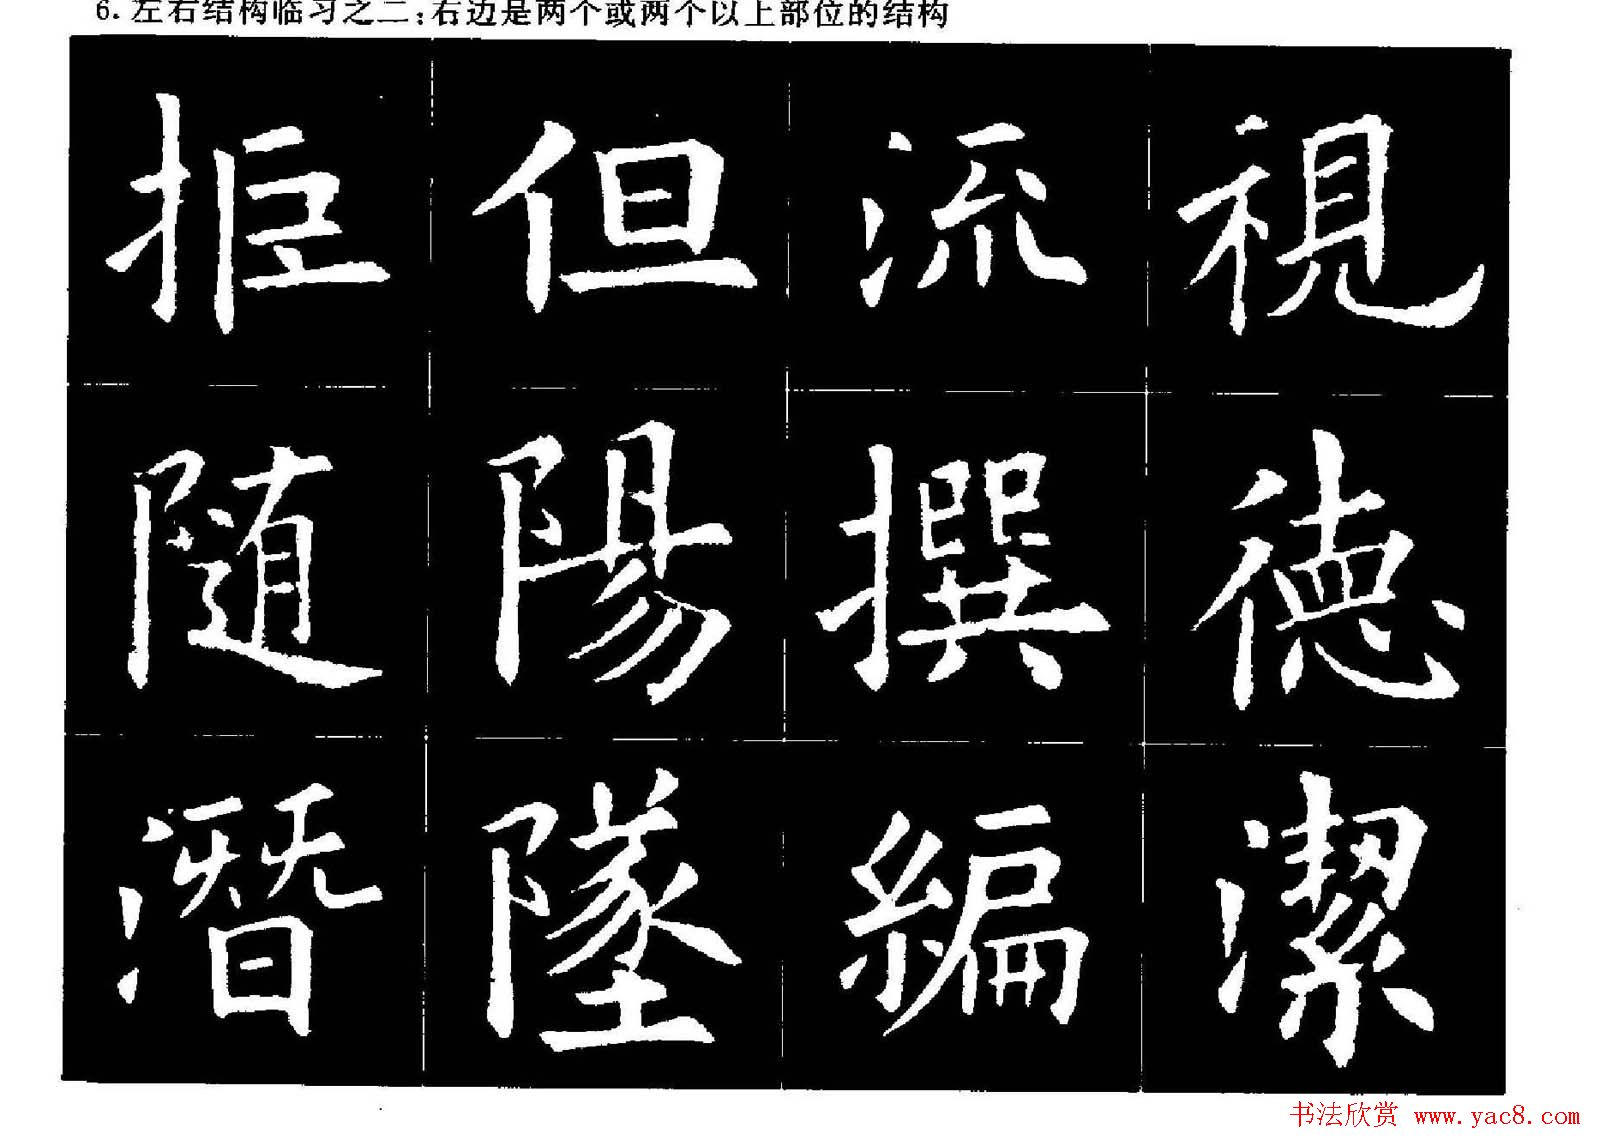 6. 左右结构临习之二：右边是两个或两个以上部位的结构
拒 但 流 視
随 陽 撰 德
潛 墜 編 潔
书法欣赏 www.yac8.com